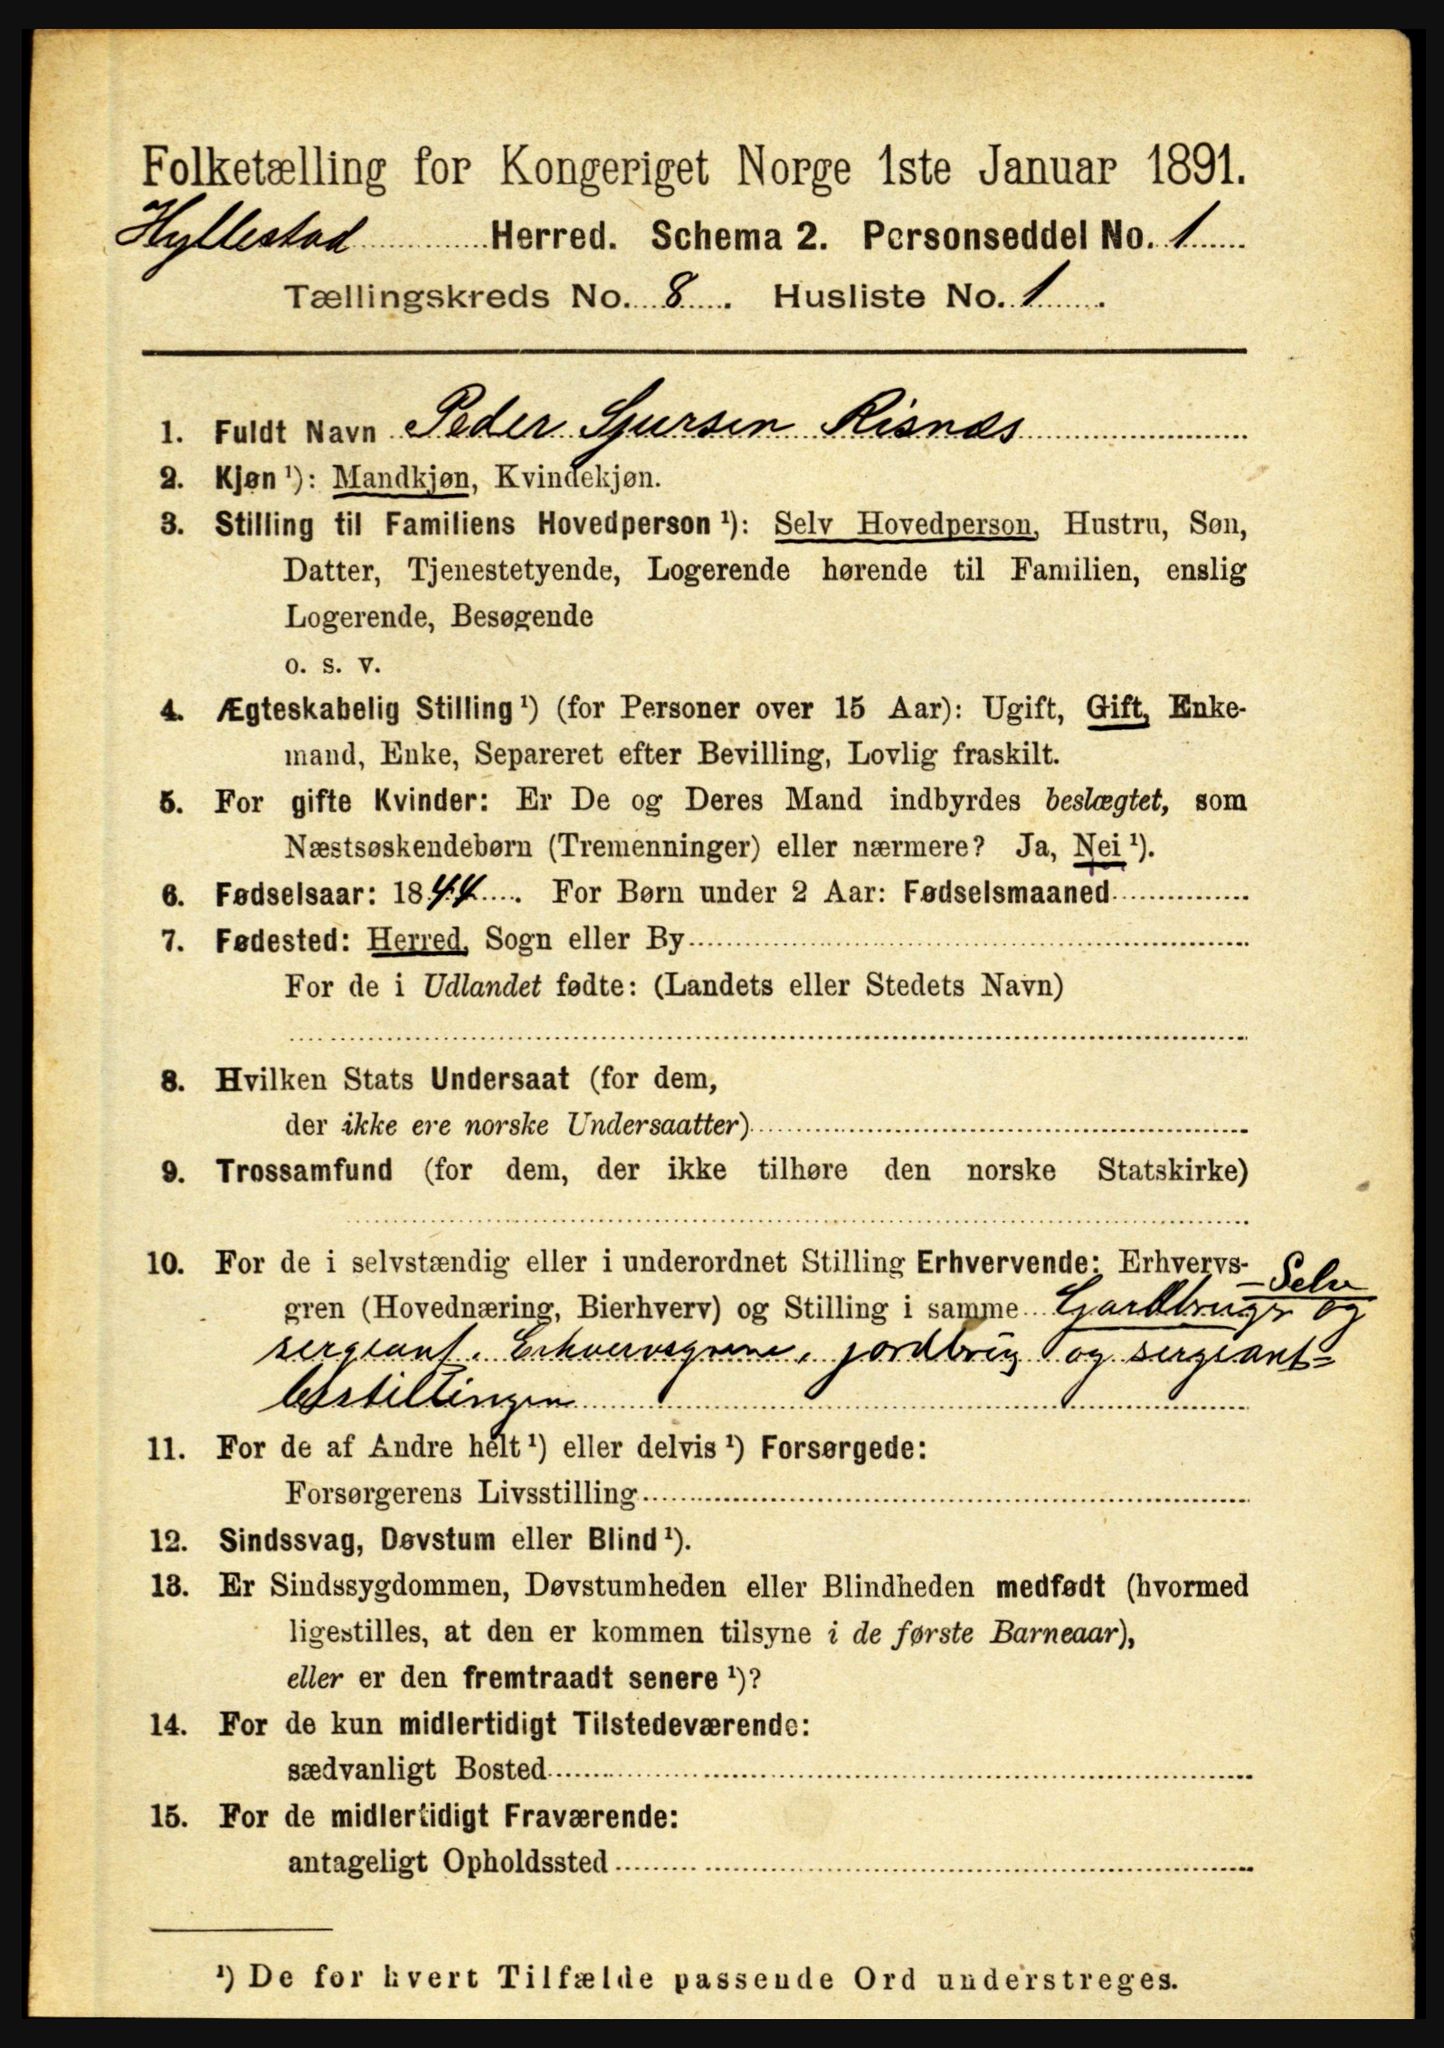 Folketælling for Kongeriget Norge 1ste Januar 1891.
Hyllestad Herred. Schema 2. Personseddel No. 1
Tællingskreds No. 8. Husliste No. 1.
1. Fuldt Navn Peder Sjursen Risnæs
2. Kjøn ¹): Mandkjøn, Kvindekjøn.
3. Stilling til Familiens Hovedperson ¹): Selv Hovedperson, Hustru, Søn,
Datter, Tjenestetyende, Logerende hørende til Familien, enslig
Logerende, Besøgende
o. s. v.
4. Ægteskabelig Stilling ¹) (for Personer over 15 Aar): Ugift, Gift, Enke-
mand, Enke, Separeret efter Bevilling, Lovlig fraskilt.
5. For gifte Kvinder: Er De og Deres Mand indbyrdes beslægtet, som
Næstsøskendebørn (Tremenninger) eller nærmere? Ja, Nei ¹).
6. Fødselsaar: 1844. For Børn under 2 Aar: Fødselsmaaned
7. Fødested: Herred, Sogn eller By
For de i Udlandet fødte: (Landets eller Stedets Navn)
8. Hvilken Stats Undersaat (for dem,
der ikke ere norske Undersaatter)
9. Trossamfund (for dem, der ikke tilhøre den norske Statskirke)
10. For de i selvstændig eller i underordnet Stilling Erhvervende: Erhvervs-
- Selv
gren (Hovednæring, Bierhverv) og Stilling i samme Gardbruger og
sergeant. Erhvervsgrene, jordbrug og sergeant=
bestillingen
11. For de af Andre helt ¹) eller delvis ¹) Forsørgede:
Forsørgerens Livsstilling
12. Sindssvag, Døvstum eller Blind ¹).
13. Er Sindssygdommen, Døvstumheden eller Blindheden medfødt (hvormed
ligestilles, at den er kommen tilsyne i de første Barneaar),
eller er den fremtraadt senere ¹)?
14. For de kun midlertidigt Tilstedeværende:
sædvanligt Bosted
15. For de midlertidigt Fraværende:
antageligt Opholdssted
¹) De for hvert Tilfælde passende Ord understreges.